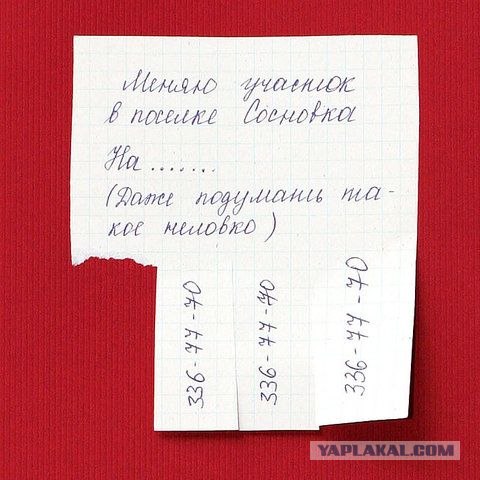 Меняю участок
в поселке Сосновка
На .......
(Даже подумать та-
кое неловко)
336-77-70
336-77-70
336-77-70
YAPLAKAL.COM